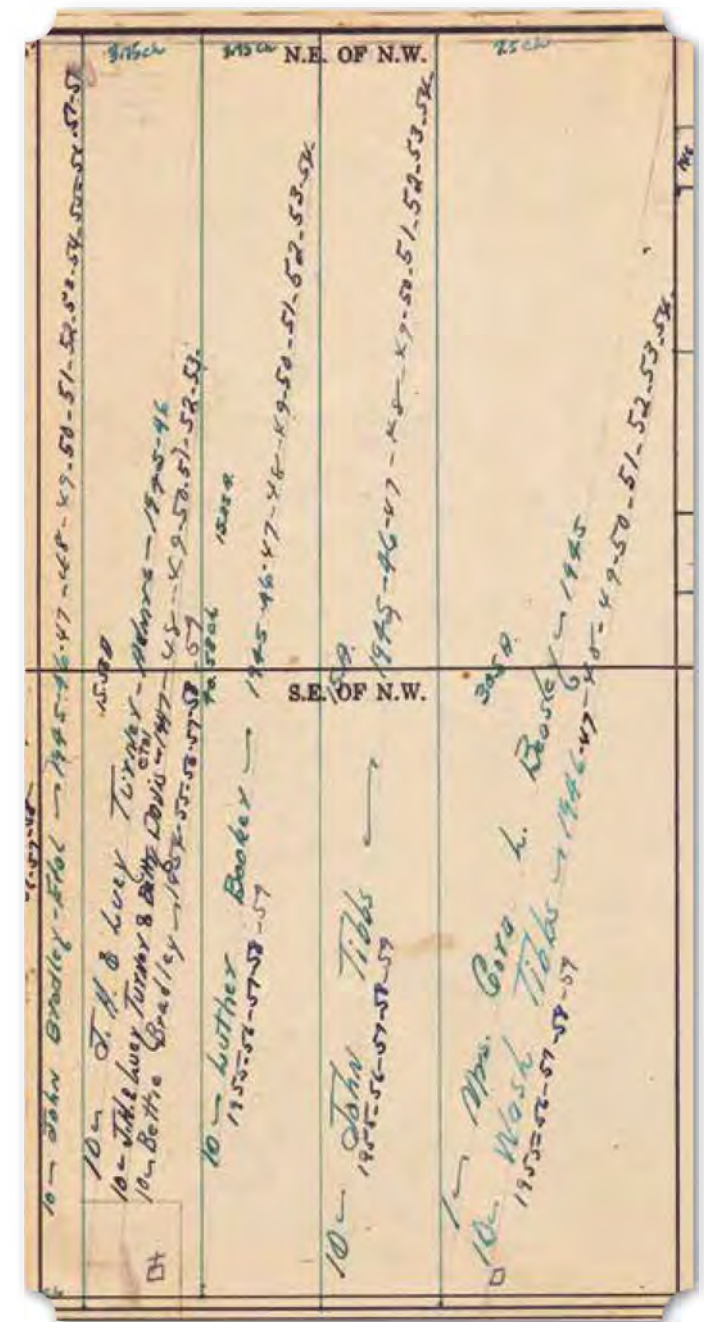 3.75 ch
3.75 ch
N.E. OF N.W.
7.5 ch
S.E. OF N.W.
10 — John Bradley - Etal — 1945-46-47-48-49-50-51-52-53-54-55-56-57-58
15.28 A
10 — J. H. & Lucy Turner - Heirs — 1945-46
Etal
10 — J.H. & Lucy Turner & Betty Davis — 1947-48-49-50-51-52-53.
10 — Bettie Bradley — 1954-55-56-57-58-59
40.58 ch
15.28 A
10 — Luther Booker — 1945-46-47-48-49-50-51-52-53-54
1955-56-57-58-59
15 A.
10 — John Tibbs — 1945-46-47-48-49-50-51-52-53-54
1955-56-57-58-59
30.5 A.
1 — Mrs. Cora L. Beasley — 1945
10 — Wash Tibbs — 1946-47-48-49-50-51-52-53-54
1955-56-57-58-59